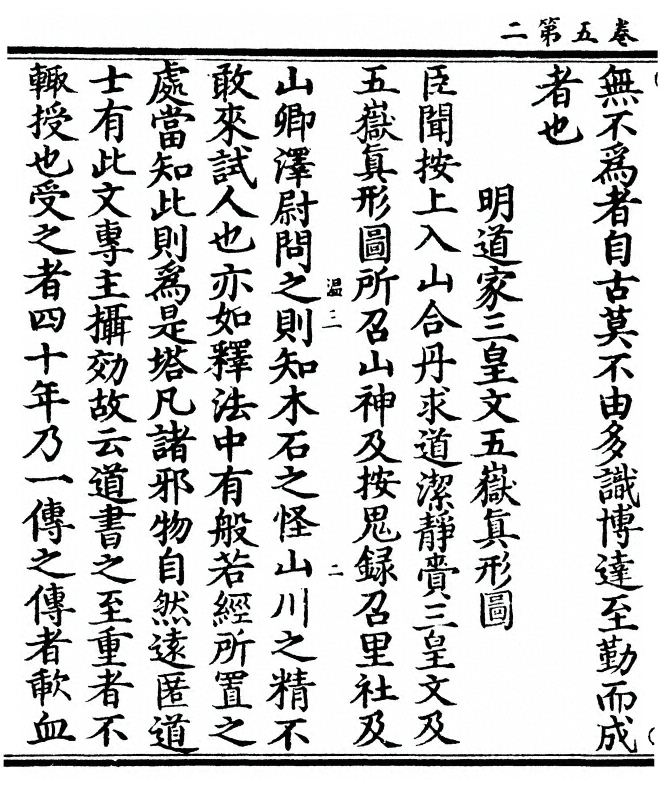 卷五第二
無不爲者自古莫不由多識博達至勤而成
者也
明道家三皇文五嶽眞形圖
臣聞按上入山合丹求道潔靜齎三皇文及
五嶽眞形圖所召山神及按鬼録召里社及
溫三
二
山卿澤尉問之則知木石之怪山川之精不
敢來試人也亦如釋法中有般若經所置之
處當知此則爲是塔凡諸邪物自然遠匿道
士有此文專主攝効故云道書之至重者不
輙授也受之者四十年乃一傳之傳者歃血